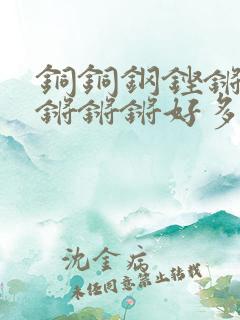 銅銅鋼鏗鏘
鏘鏘鏘好多
沈金病
未经同意禁止转载